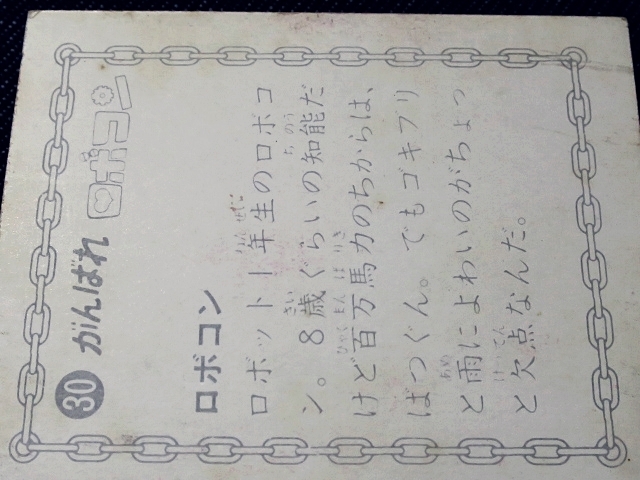 30 がんばれ ロボコン
ロボコン
ロボット一年生のロボコ
ン。8歳ぐらいの知能だ
けど百万馬力のちからは、
ばつぐん。でもゴキブリ
と雨によわいのがちょっ
と欠点なんだ。